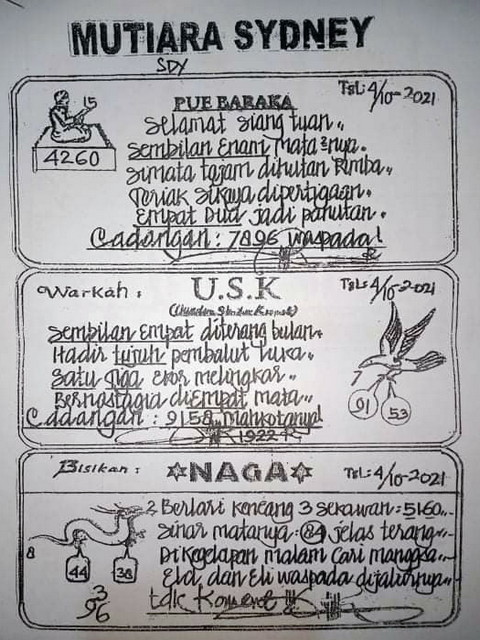 MUTIARA SYDNEY
SDY
Tgl: 4/10-2021
15
4260
PUE BARAKA
Selamat siang tuan..
Sembilan Enam mata nya.
Simata tajam dihutan Rimba..
Teriak Sikwa dipertigaan.
Empat Dua jadi panutan.
Cadangan: 7896 waspada!
Warkah:
U.S.K
Tgl: 4/10-2021
Sembilan Empat diterang bulan.
Hadir tujuh pembalut luka.
Satu Tiga Ekor melingkar..
Bernostagia diEmpat mata..
Cadangan: 9158 Mahkotanya!
1922
7
91
53
Bisikan:
NAGA
Tgl: 4/10-2021
2 Berlari kencang 3 sekawan: 5160..
Sinar matanya: 84 jelas terang..
Di Kegelapan malam Cari mangsa..
Eld, dan Eli waspada dijalurnya..
8
44
38
3
96